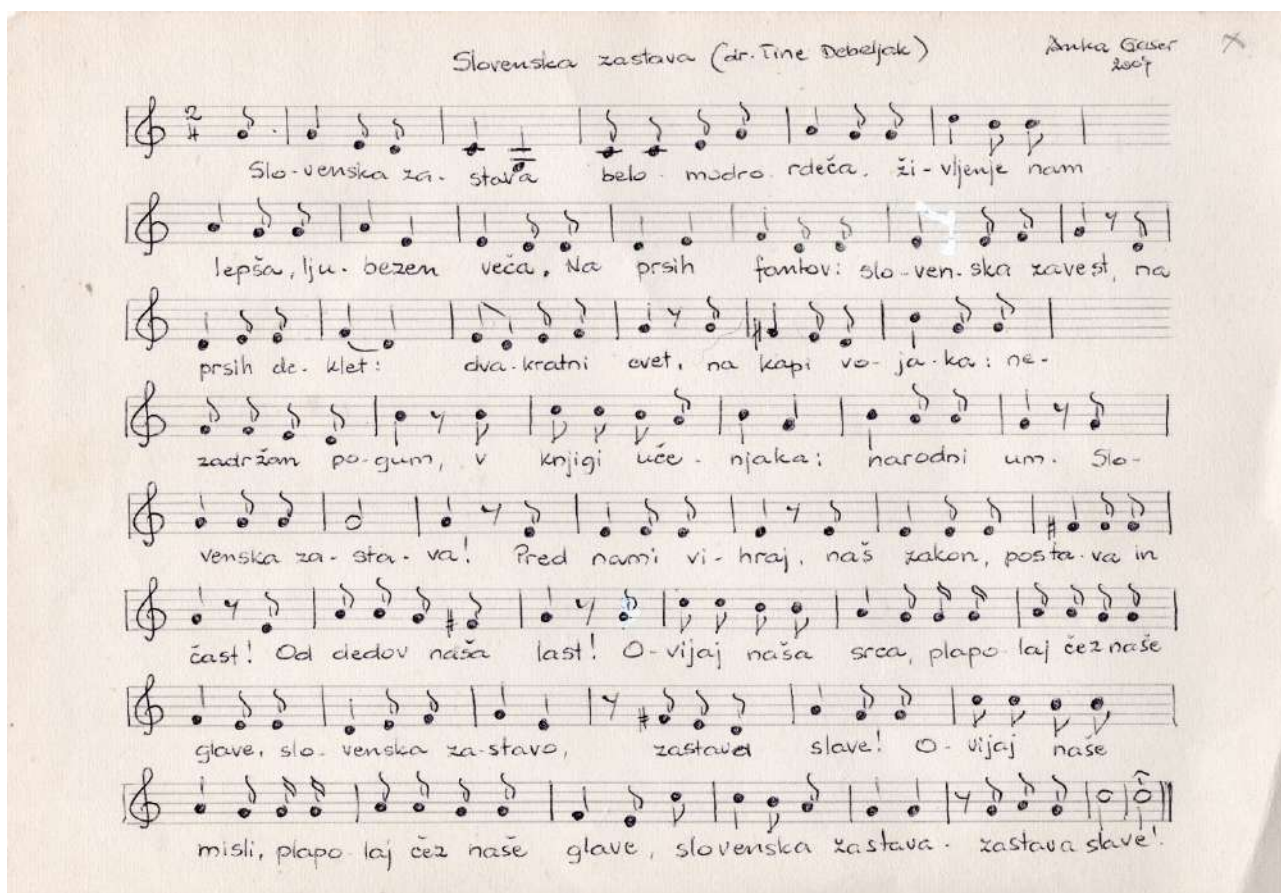 Slovenska zastava (dr. Tine Debeljak)
Anka Gaser
2007
2
4
Slo-venska za-stava belo-modro-rdeča, ži-vljenje nam
lepša, lju-bezen veča. Na prsih fantov: slo-ven-ska zavest, na
prsih de-klet: dva-kratni cvet, na kapi vo-ja-ka: ne-
zadržan po-gum, v knjigi uče-njaka: narodni um. Slo-
venska za-sta-va! Pred nami vi-hraj, naš zakon, posta-va in
čast! Od dedov naša last! O-vijaj naša srca, plapo-laj čez naše
glave, slo-venska za-stavo, zastava slave! O-vijaj naše
misli, plapo-laj čez naše glave, slovenska zastava. zastava slave!